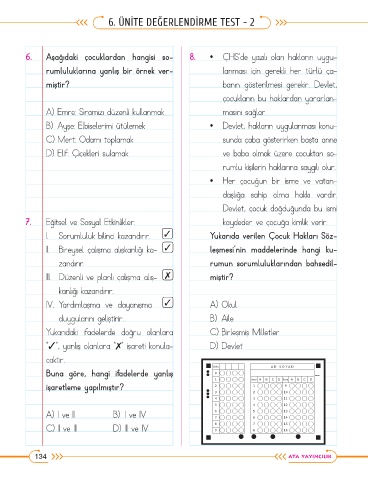 6. ÜNİTE DEĞERLENDİRME TEST - 2
6. Aşağıdaki çocuklardan hangisi so-
rumluluklarına yanlış bir örnek ver-
miştir?
A) Emre: Sıramızı düzenli kullanmak.
B) Ayşe: Elbiselerimi ütülemek
C) Mert: Odamı toplamak
D) Elif: Çiçekleri sulamak
7. Eğitsel ve Sosyal Etkinlikler;
I. Sorumluluk bilinci kazandırır. ✓
II. Bireysel çalışma alışkanlığı ka- ✓
zandırır.
III. Düzenli ve planlı çalışma alış- ✗
kanlığı kazandırır.
IV. Yardımlaşma ve dayanışma ✓
duygularını geliştirir.
Yukarıdaki ifadelerde doğru olanlara
"✓", yanlış olanlara "✗" işareti konula-
caktır.
Buna göre, hangi ifadelerde yanlış
işaretleme yapılmıştır?
A) I ve II B) I ve IV
C) II ve III D) III ve IV
8. • ÇHS'de yazılı olan hakların uygu-
lanması için gerekli her türlü ça-
banın gösterilmesi gerekir. Devlet,
çocukların bu haklardan yararlan-
masını sağlar.
• Devlet, hakların uygulanması konu-
sunda çaba gösterirken başta anne
ve baba olmak üzere çocuktan so-
rumlu kişilerin haklarına saygılı olur.
• Her çocuğun bir isme ve vatan-
daşlığa sahip olma hakkı vardır.
Devlet, çocuk doğduğunda bu ismi
kaydeder ve çocuğa kimlik verir.
Yukarıda verilen Çocuk Hakları Söz-
leşmesi'nin maddelerinde hangi ku-
rumun sorumluluklarından bahsedil-
miştir?
A) Okul
B) Aile
C) Birleşmiş Milletler
D) Devlet
AD SOYAD
134
ATA YAYINCILIK